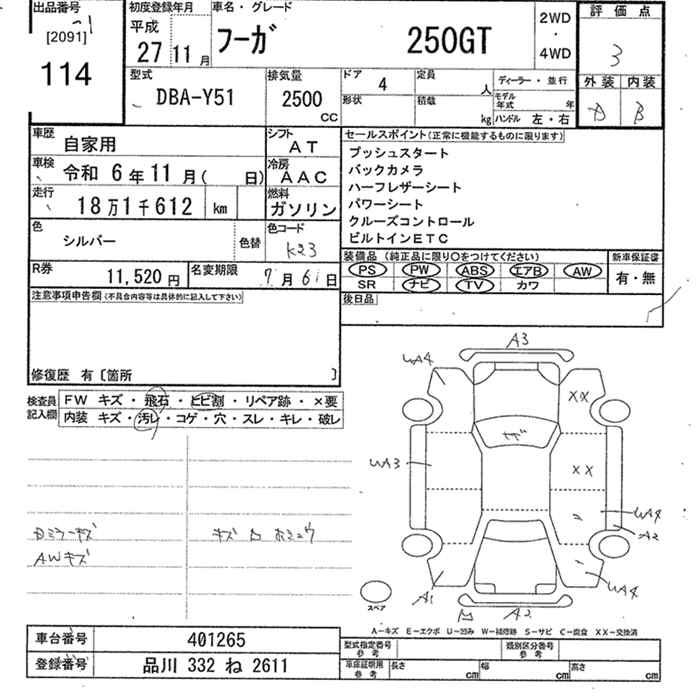 出品番号
[2091]
114
初度登録年月
平成
27 11月
車名・グレード
フーガ
250GT
2WD
・
4WD
評価点
3
外装 内装
D B
型式
DBA-Y51
排気量
2500
CC
ドア
4
定員
人
形状
積載
kg
ディーラー・並行
モデル年式 年
ハンドル 左・右
車歴
自家用
シフト
AT
車検
令和 6年11月( 日)
冷房
AAC
走行
18万1千612 km
燃料
ガソリン
色
シルバー
色替
色コード
K23
R券
11,520 円
名変期限
7月61日
セールスポイント(正常に機能するものに限ります)
プッシュスタート
バックカメラ
ハーフレザーシート
パワーシート
クルーズコントロール
ビルトインETC
装備品 (純正品に限り○をつけてください)
PS PW ABS エアB AW
SR ナビ TV カワ
新車保証書
有・無
後日品
注意事項申告欄(不具合内容等は具体的に記入して下さい)
修復歴 有〔箇所 〕
検査員
記入欄
FW キズ・飛石・ヒビ割・リペア跡・×要
内装 キズ・汚レ・コゲ・穴・スレ・キレ・破レ
AWキズ
A3
WA4
XX
キズ
WA3
XX
WA4
A2
WA4
A1
A2
スペア
A-キズ E-エクボ U-凹み W-補修跡 S-サビ C-腐食 XX-交換済
車台番号
401265
登録番号
品川 332 ね 2611
型式指定番号
参考
類別区分番号
参考
車庫証明用
参考
長さ cm
幅 cm
高さ cm